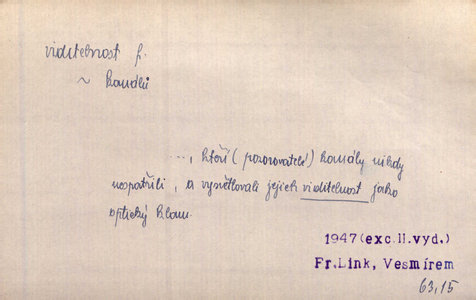 viditelnost f.
~ kanálů
..., kteří (pozorovatelé) kanály nikdy
nespatřili, a vysvětlovali jejich viditelnost jako
optický klam.
1947 (exc. II. vyd.)
Fr. Link, Vesmírem
63,15